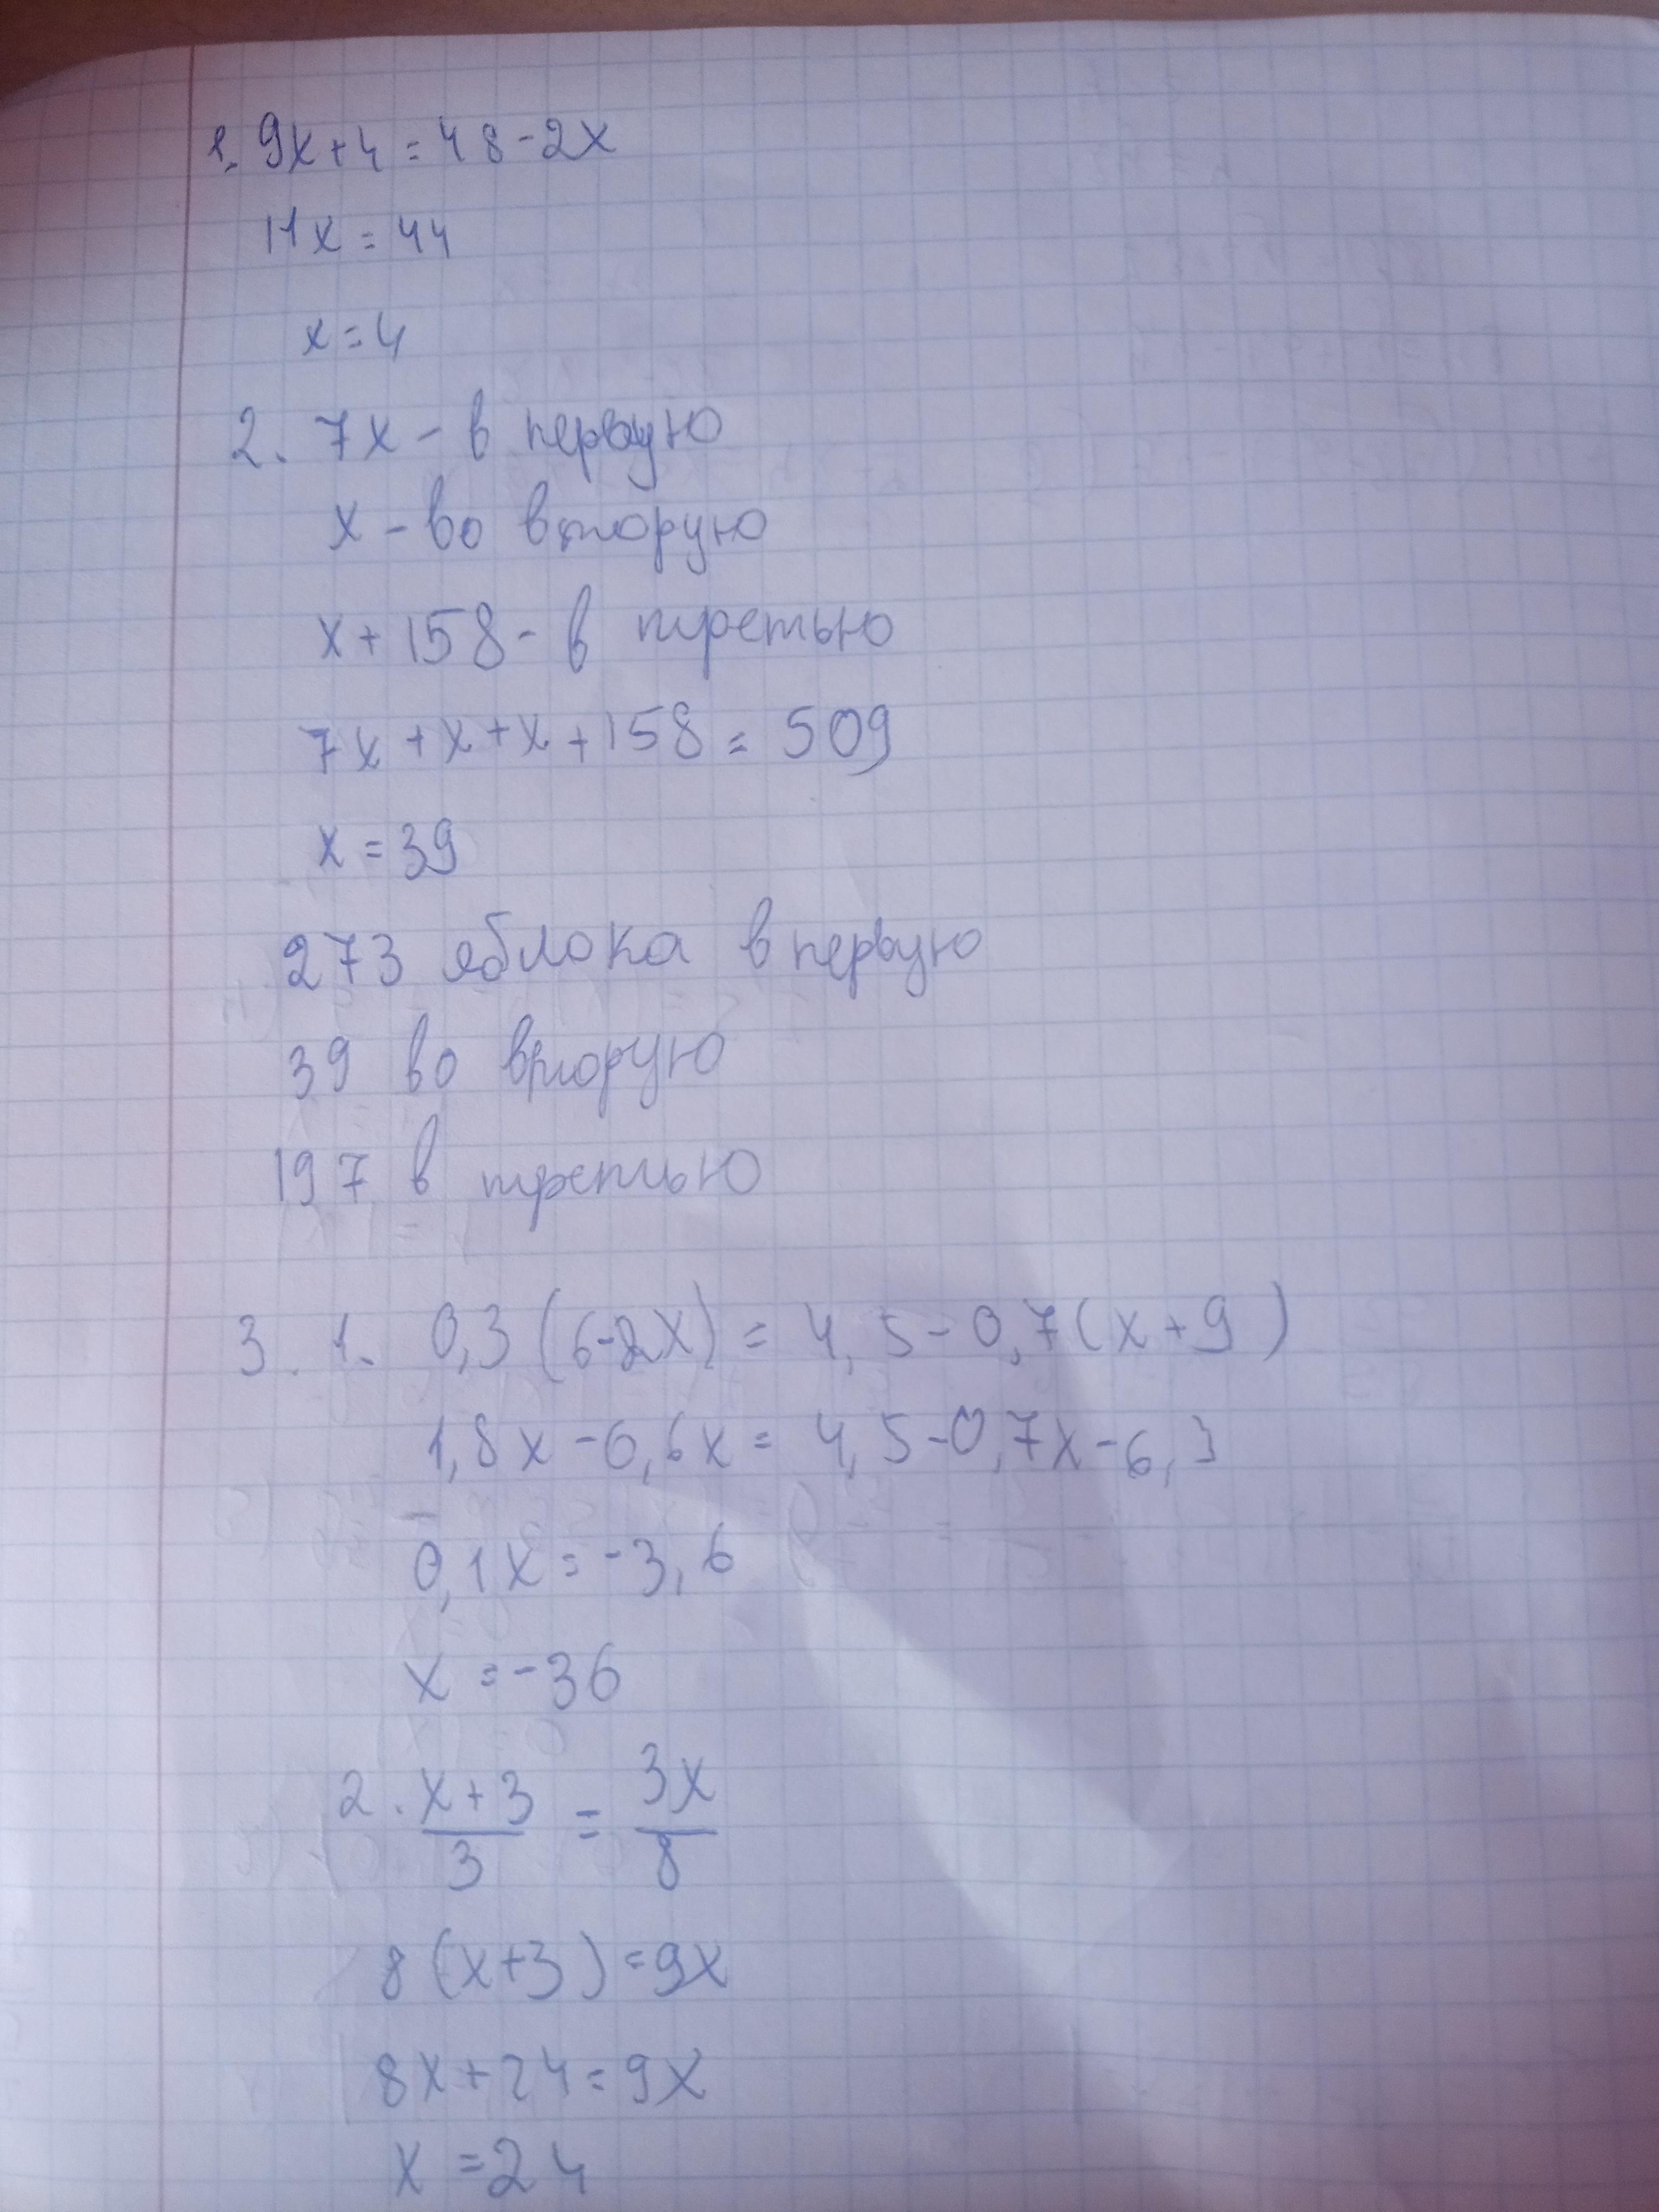 1. 9x+4=48-2x
11x=44
x=4
2. 7x-в первую
x-во вторую
x+158-в третью
7x+x+x+158=509
x=39
273 яблока в первую
39 во вторую
197 в третью
3. 1. 0,3(6-2x)=4,5-0,7(x+9)
1,8x-0,6x=4,5-0,7x-6,3
0,1x=-3,6
x=-36
2. x+3/3=3x/8
8(x+3)=9x
8x+24=9x
x=24